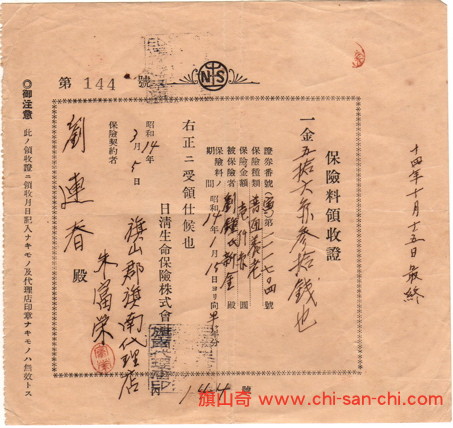 十四年十月十五日最終
保險料領收證
一金五拾六円参拾錢也
證券番號 寓第一一七四號
保險種類 普通養老
保險金額 壱仟 圓
被保險者 劉鍾氏新金 殿
保險料ノ期間 昭和14年1月15日ヨリ向
右正ニ受領仕候也
昭和14年3月5日
日淸生命保險株式會
旗山郡旗南代理店
朱富榮
保險契約者
劉連春殿
第144號
◎御注意 此ノ領收證ニ領收月日記入ナキモノ及代理店印章ナキモノハ無效トス
NS
144號
旗山奇 http://www.chi-san-chi.com/